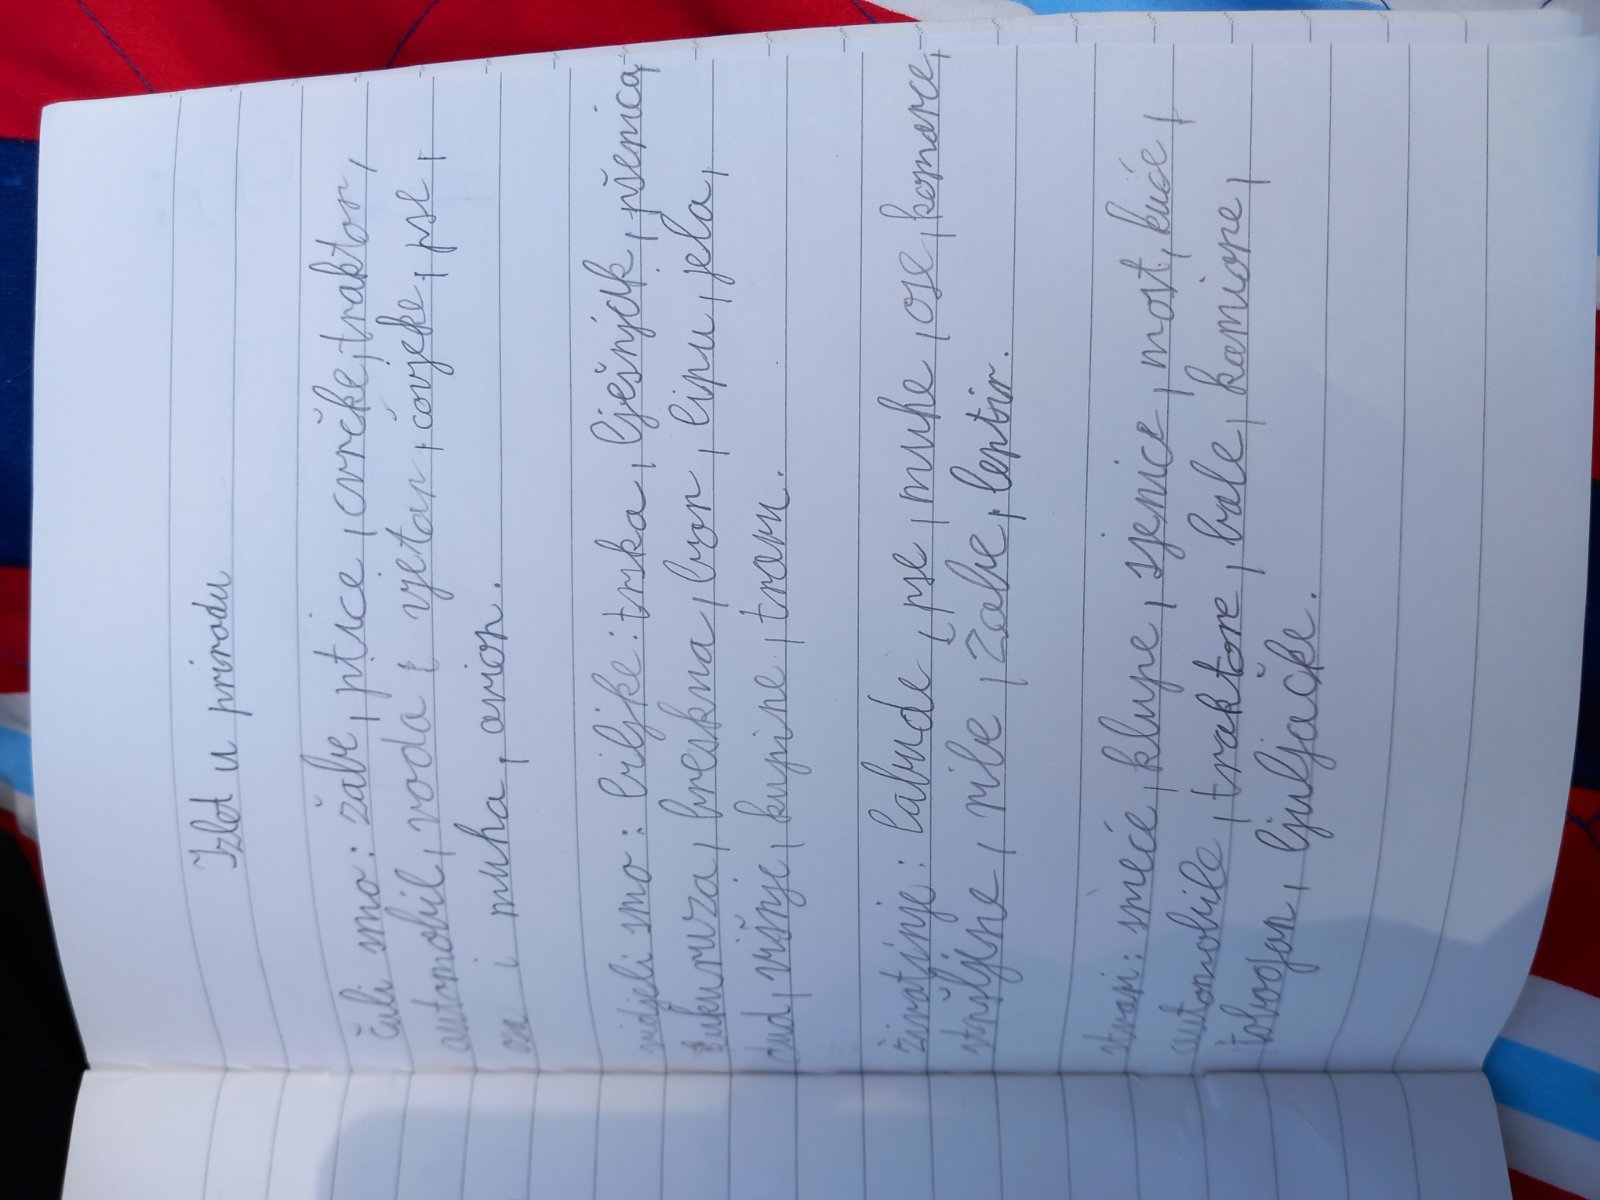 Izlet u prirodu
Čuli smo: žabe, ptice, cvrčke, traktor,
automobil, voda, vjetar, čovjeke, pse,
i muha, avion.
vidjeli smo: biljke: trska, lješnjak, pšenica,
kukuruza, breskna, bor, lipu, jela,
dud, višnje, kupine, travu.
životinje: labude, pse, muhe, ose, komarce,
stršljne, ribe, žabe, leptir.
stvari: smeće, klupe, sjenice, most, kuće,
automobile, traktore, bale, kamione,
tobogan, ljuljačke.